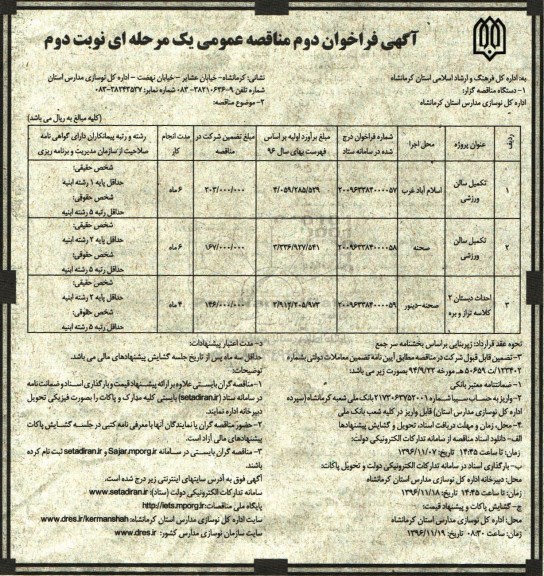 آگهی فراخوان دوم مناقصه عمومی یک مرحله ای نوبت دوم
به: اداره کل فرهنگ و ارشاد اسلامی استان کرمانشاه
۱- دستگاه مناقصه گزار:
اداره کل نوسازی مدارس استان کرمانشاه
نشانی: کرمانشاه- خیابان عشایر - خیابان نهضت - اداره کل نوسازی مدارس استان
شماره تلفن ۹-۳۸۲۱۰۶۳۶-۰۸۳ شماره نمابر: ۳۸۲۴۳۵۳۷-۰۸۳
۲- موضوع مناقصه:
(کلیه مبالغ به ریال می باشد)
ردیف عنوان پروژه محل اجرا شماره فراخوان درج شده در سامانه ستاد مبلغ برآورد اولیه بر اساس فهرست بهای سال ۹۶ مبلغ تضمین شرکت در مناقصه مدت انجام کار رشته و رتبه پیمانکاران دارای گواهی نامه صلاحیت از سازمان مدیریت و برنامه ریزی
۱ تکمیل سالن ورزشی اسلام آباد غرب ۲۰۰۹۶۳۳۸۴۰۰۰۰۵۷ ۴/۰۵۹/۲۸۵/۵۲۹ ۲۰۳/۰۰۰/۰۰۰ ۶ ماه شخص حقیقی: حداقل پایه ۱ رشته ابنیه شخص حقوقی: حداقل رتبه ۵ رشته ابنیه
۲ تکمیل سالن ورزشی صحنه ۲۰۰۹۶۳۳۸۴۰۰۰۰۵۸ ۳/۳۳۶/۹۲۷/۵۴۱ ۱۶۷/۰۰۰/۰۰۰ ۶ ماه شخص حقیقی: حداقل پایه ۲ رشته ابنیه شخص حقوقی: حداقل رتبه ۵ رشته ابنیه
۳ احداث دبستان ۲ کلاسه تراز و بره صحنه-دینور ۲۰۰۹۶۳۳۸۴۰۰۰۰۵۹ ۲/۹۱۲/۲۰۵/۹۷۳ ۱۴۶/۰۰۰/۰۰۰ ۴ ماه شخص حقیقی: حداقل پایه ۲ رشته ابنیه شخص حقوقی: حداقل رتبه ۵ رشته ابنیه
نحوه عقد قرارداد: زیربنایی بر اساس بخشنامه سر جمع
۳- تضمین قابل قبول شرکت در مناقصه مطابق آیین نامه تضمین معاملات دولتی بشماره
۱۲۳۴۰۲/ت ۵۰۶۵۹ هـ مورخه ۹۴/۹/۲۲ بصورت زیر می باشد:
۱- ضمانتنامه معتبر بانکی
۲- واریز به حساب سیبا شماره ۲۱۷۳۰۶۳۷۵۲۰۰۱ بانک ملی شعبه کرمانشاه (سپرده
اداره کل نوسازی مدارس استان) قابل واریز در کلیه شعب بانک ملی
۴- محل، زمان و مهلت دریافت اسناد، تحویل و گشایش پیشنهادها
الف- دانلود اسناد مناقصه از سامانه تدارکات الکترونیکی دولت:
زمان: تا ساعت ۱۴:۴۵ تاریخ: ۱۳۹۶/۱۱/۰۷
ب- بارگذاری اسناد در سامانه تدارکات الکترونیکی دولت و تحویل پاکات:
محل: دبیرخانه اداره کل نوسازی مدارس استان کرمانشاه
زمان: تا ساعت ۱۴:۴۵ تاریخ: ۱۳۹۶/۱۱/۱۸
ج- گشایش پاکات و پیشنهاد قیمت:
محل: اداره کل نوسازی مدارس استان کرمانشاه
زمان: ساعت ۰۸:۳۰ تاریخ: ۱۳۹۶/۱۱/۱۹
د- مدت اعتبار پیشنهادات:
حداقل سه ماه پس از تاریخ جلسه گشایش پیشنهادهای مالی می باشد.
توضیحات:
۱- مناقصه گران بایستی علاوه بر ارائه پیشنهاد قیمت و بارگذاری اسناد و ضمانت نامه
در سامانه ستاد (setadiran.ir) بایستی کلیه مدارک و پاکات را بصورت فیزیکی تحویل
دبیرخانه اداره نمایند.
۲- حضور مناقصه گران یا نمایندگان آنها با معرفی نامه کتبی در جلسه گشایش پاکات
پیشنهادهای مالی آزاد است.
۳- مناقصه گران بایستی در سامانه Sajar.mporg.ir و setadiran.ir ثبت نام کرده
باشند.
آگهی فوق به آدرس سایتهای اینترنتی زیر درج شده است.
سامانه تدارکات الکترونیکی دولت (ستاد): www.setadiran.ir
پایگاه ملی مناقصات: http://iets.mporg.ir
سایت اداره کل نوسازی مدارس استان کرمانشاه: www.dres.ir/kermanshah
سایت سازمان نوسازی مدارس کشور: www.dres.ir